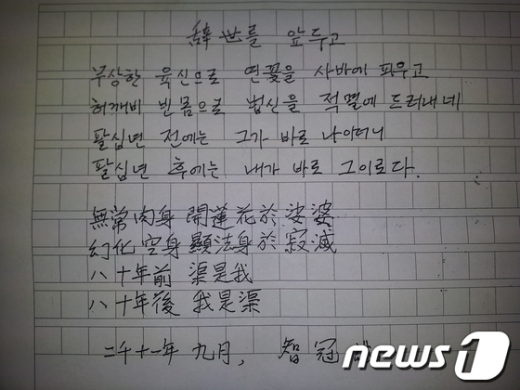 辭世를 앞두고
무상한 육신으로 연꽃을 사바에 피우고
허깨비 빈몸으로 법신을 적멸에 드러내네
팔십년 전에는 그가 바로 나이더니
팔십년 후에는 내가 바로 그이로다.
無常肉身 開蓮花於娑婆
幻化空身 顯法身於寂滅
八十年前 渠是我
八十年後 我是渠
二千十一年 九月, 智冠
news1